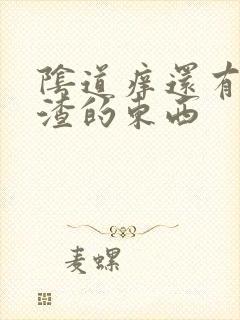 陰道痒還有
渣的東西
麦螺